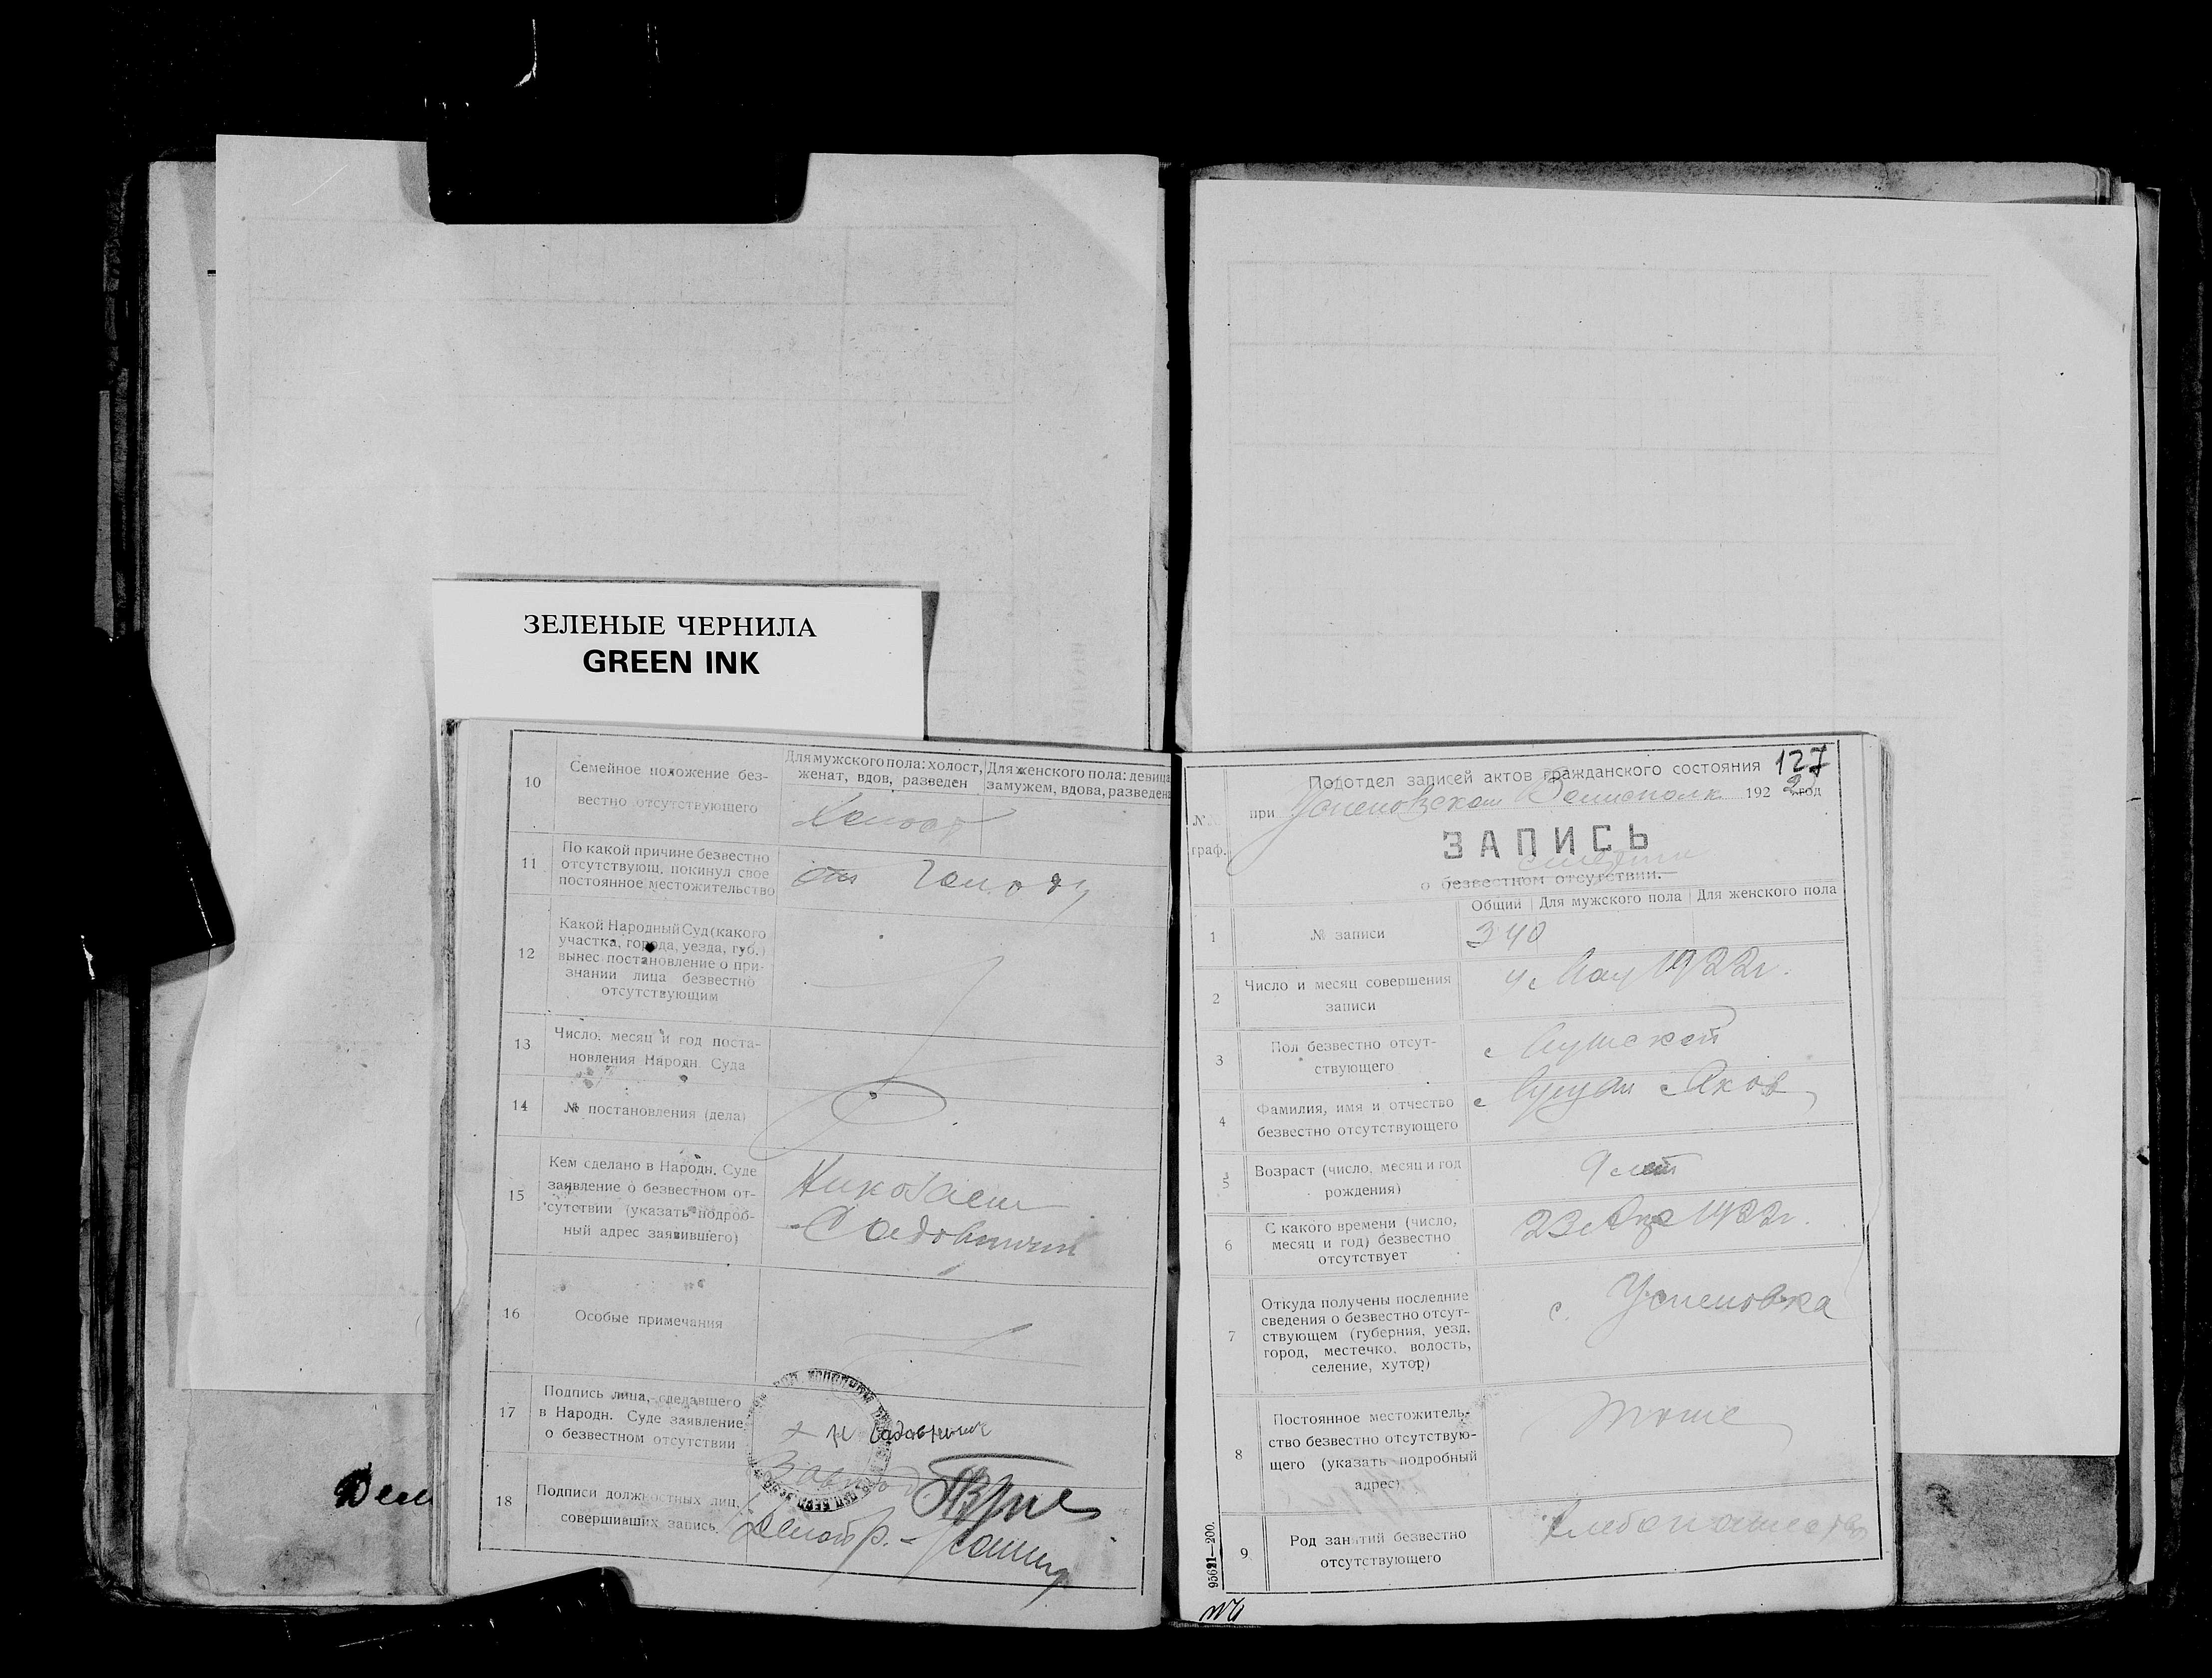 ЗЕЛЕНЫЕ ЧЕРНИЛА
GREEN INK
10
Семейное положение без-
вестно отсутствующего
Для мужского пола: холост,
женат, вдов, разведен
Для женского пола: девица
замужем, вдова, разведена
Холост
11
По какой причине безвестно
отсутствующ. покинул свое
постоянное местожительство
от голоду
12
Какой Народный Суд (какого
участка, города, уезда, губ.)
вынес постановление о при-
знании лица безвестно
отсутствующим
13
Число, месяц и год поста-
новления Народн. Суда
14
№ постановления (дела)
15
Кем сделано в Народн. Суде
заявление о безвестном от-
сутствии (указать подроб-
ный адрес заявившего)
Николаем
Садовничий
16
Особые примечания
17
Подпись лица, сделавшего
в Народн. Суде заявление
о безвестном отсутствии
18
Подписи должностных лиц,
совершивших запись
127
Подотдел записей актов гражданского состояния
при Успеновском Волисполк. 1922 год
№№
граф.
ЗАПИСЬ
смерти
о безвестном отсутствии.
Общий
Для мужского пола
Для женского пола
1
№ записи
340
2
Число и месяц совершения
записи
4 Мая 1922г.
3
Пол безвестно отсут-
ствующего
Мужской
4
Фамилия, имя и отчество
безвестно отсутствующего
Яков
5
Возраст (число, месяц и год
рождения)
9 лет
6
С какого времени (число,
месяц и год) безвестно
отсутствует
23 Апр 1922г.
7
Откуда получены последние
сведения о безвестно отсут-
ствующем (губерния, уезд,
город, местечко, волость,
селение, хутор)
с. Успеновка
8
Постоянное местожитель-
ство безвестно отсутствую-
щего (указать подробный
адрес)
тоже
9
Род занятий безвестно
отсутствующего
Хлебопашество
95621—200.